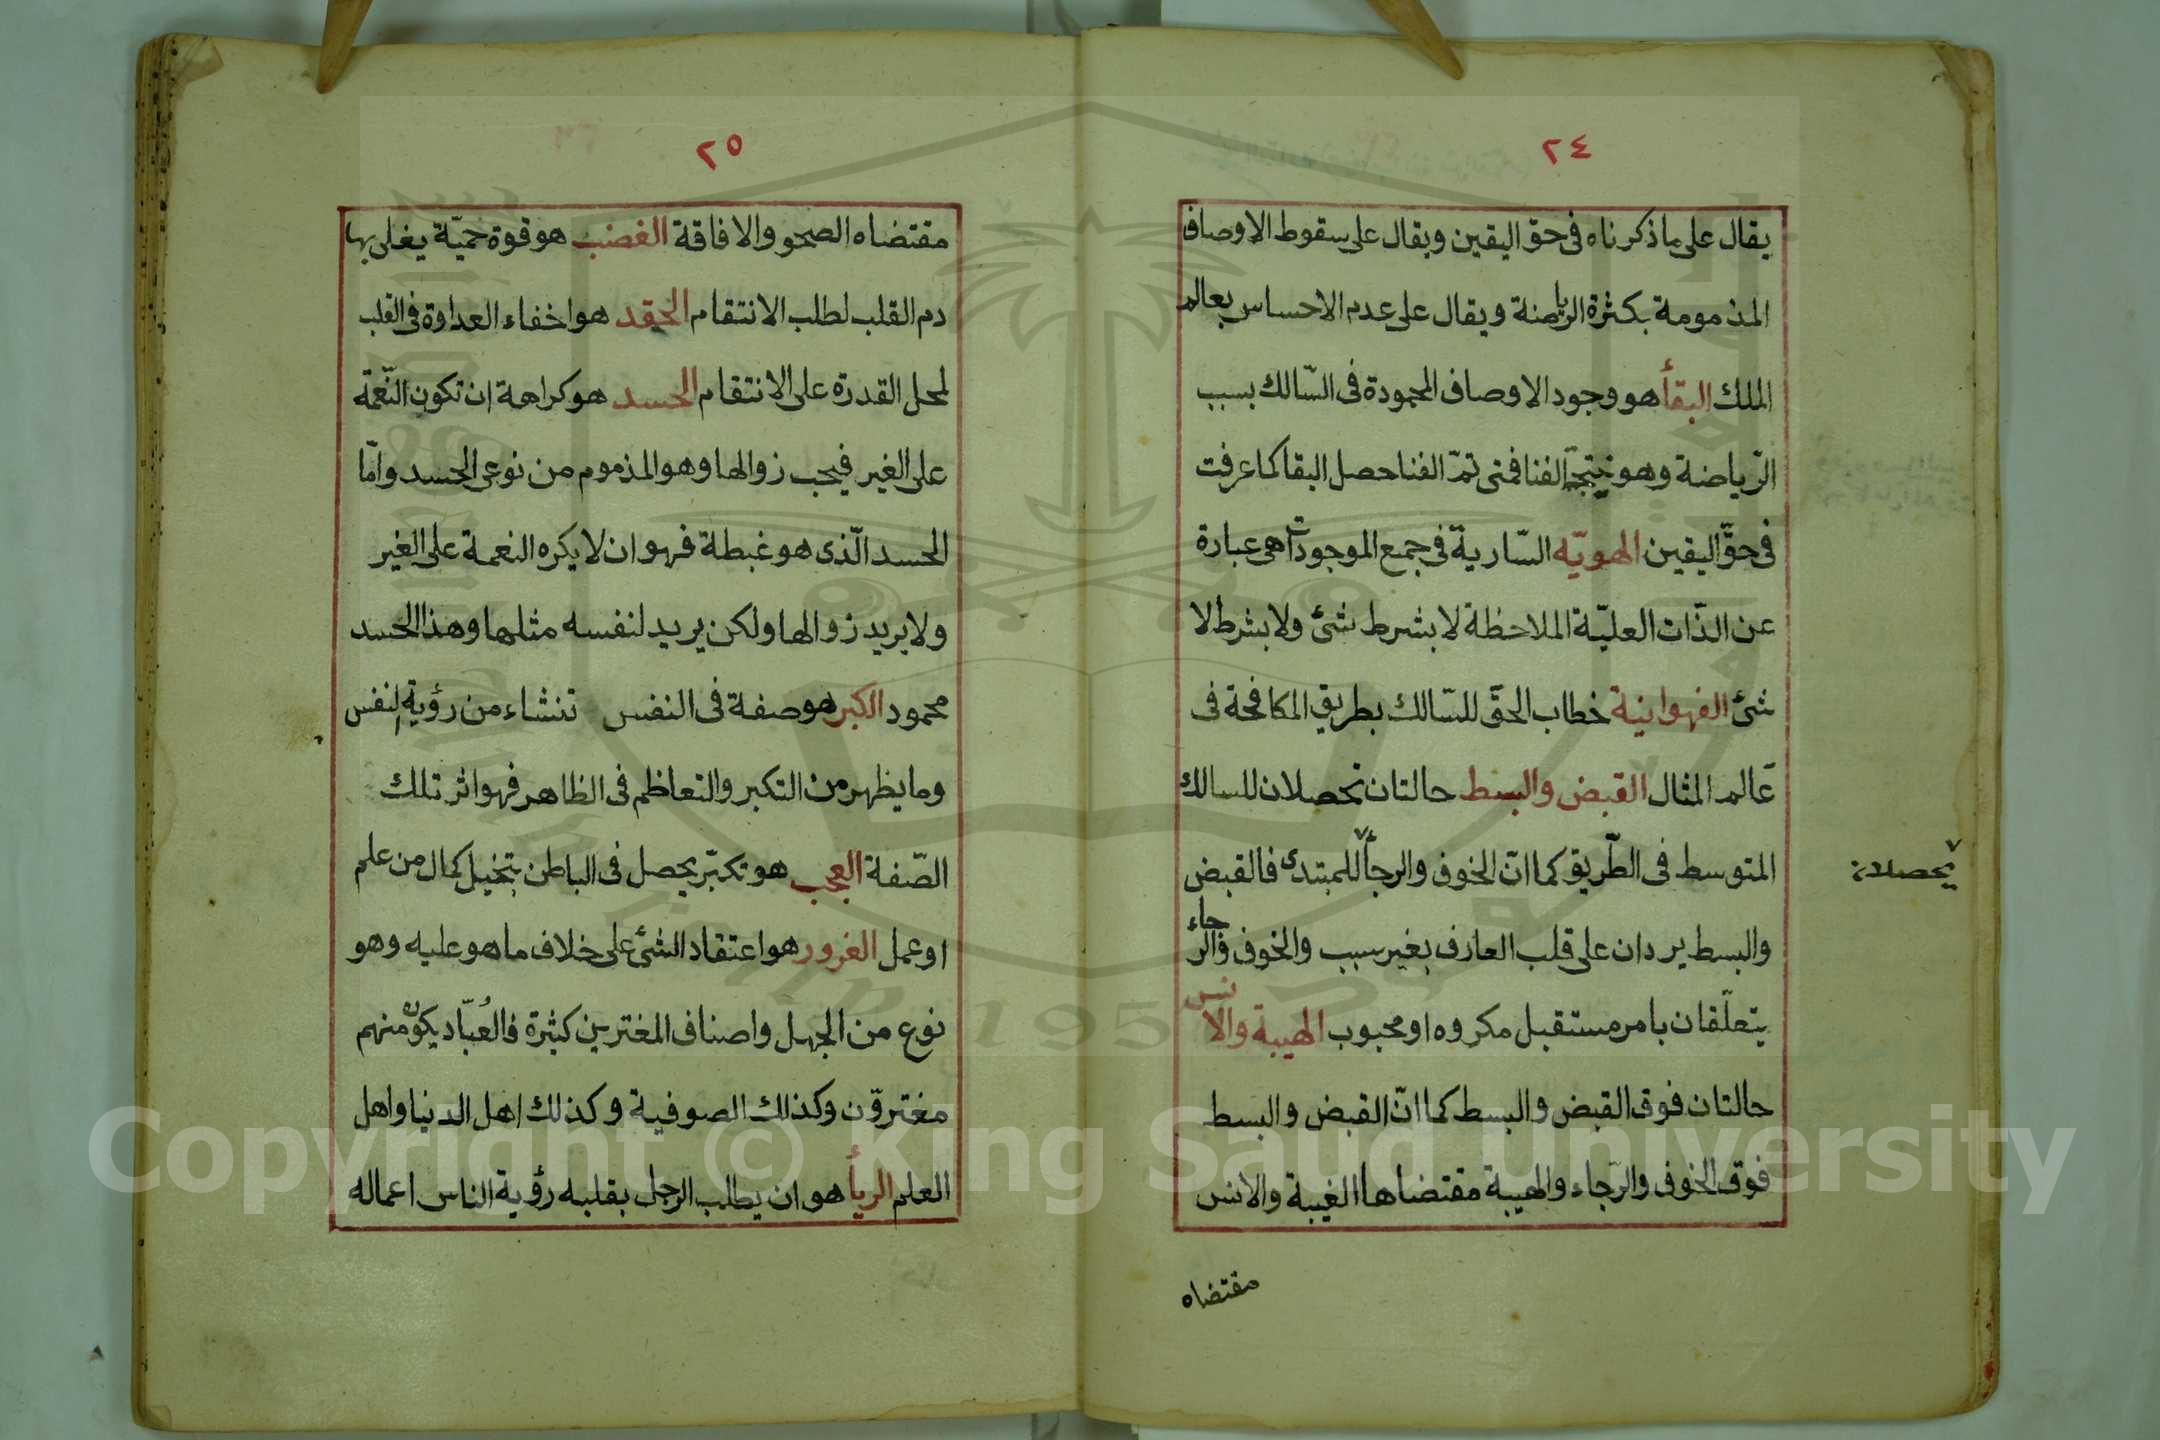 ٢٤
يقال على ما ذكرناه فى حق اليقين ويقال على سقوط الاوصاف
المذمومة بكثرة الرياضة ويقال على عدم الاحساس بعالم
الملك البقأ هو وجود الاوصاف المحمودة فى السّالك بسبب
الرّياضة وهو نتيجة الفنا فمتى تمّ الفنا حصل البقا كما عرفت
فى حقّ اليقين الهويّه السّارية فى جميع الموجودات هى عبارة
عن الذّات العليّة الملاحظة لا بشرط شئ ولا بشرط لا
شئ الفهوانية خطاب الحقّ للسّالك بطريق المكافحة فى
عالم المثال القبض والبسط حالتان تحصلان للسالك
المتوسط فى الطّريق كما انّ الخوف والرجأ للمبتدى فالقبض
يحصلان
والبسط يردان على قلب العارف بغير سبب والخوف والرجاء
يتعلّقان بامر مستقبل مكروه او محبوب الهيبة والانس
حالتان فوق القبض والبسط كما انّ القبض والبسط
فوق الخوف والرّجاء والهيبة مقتضاها الغيبة والانس
مقتضاه
٢٥
مقتضاه الصحو والافاقة الغضب هو قوة حميّة يغلى بها
دم القلب لطلب الانتقام الحقد هو اخفاء العداوة فى القلب
لمحل القدرة على الانتقام الحسد هو كراهة ان تكون النّعمة
على الغير فيحب زوالها وهو المذموم من نوعى الحسد وامّا
الحسد الّذى هو غبطة فهو ان لا يكره النعمة على الغير
ولا يريد زوالها ولكن يريد لنفسه مثلها وهذا الحسد
محمود الكبر هو صفة فى النفس تنشاء من رؤية النفس
وما يظهر من التكبر والتعاظم فى الظاهر فهو اثر تلك
الصّفة العجب هو تكبّر يحصل فى الباطن بتخيل كمال من علم
او عمل الغرور هو اعتقاد الشئ على خلاف ما هو عليه وهو
نوع من الجهل واصناف المغترين كثيرة فالعُبّاد يكون منهم
مغترّون وكذلك الصوفية وكذلك اهل الدنيا واهل
العلم الريأ هو ان يطلب الرجل بقلبه رؤية الناس اعماله
Copyright © King Saud University